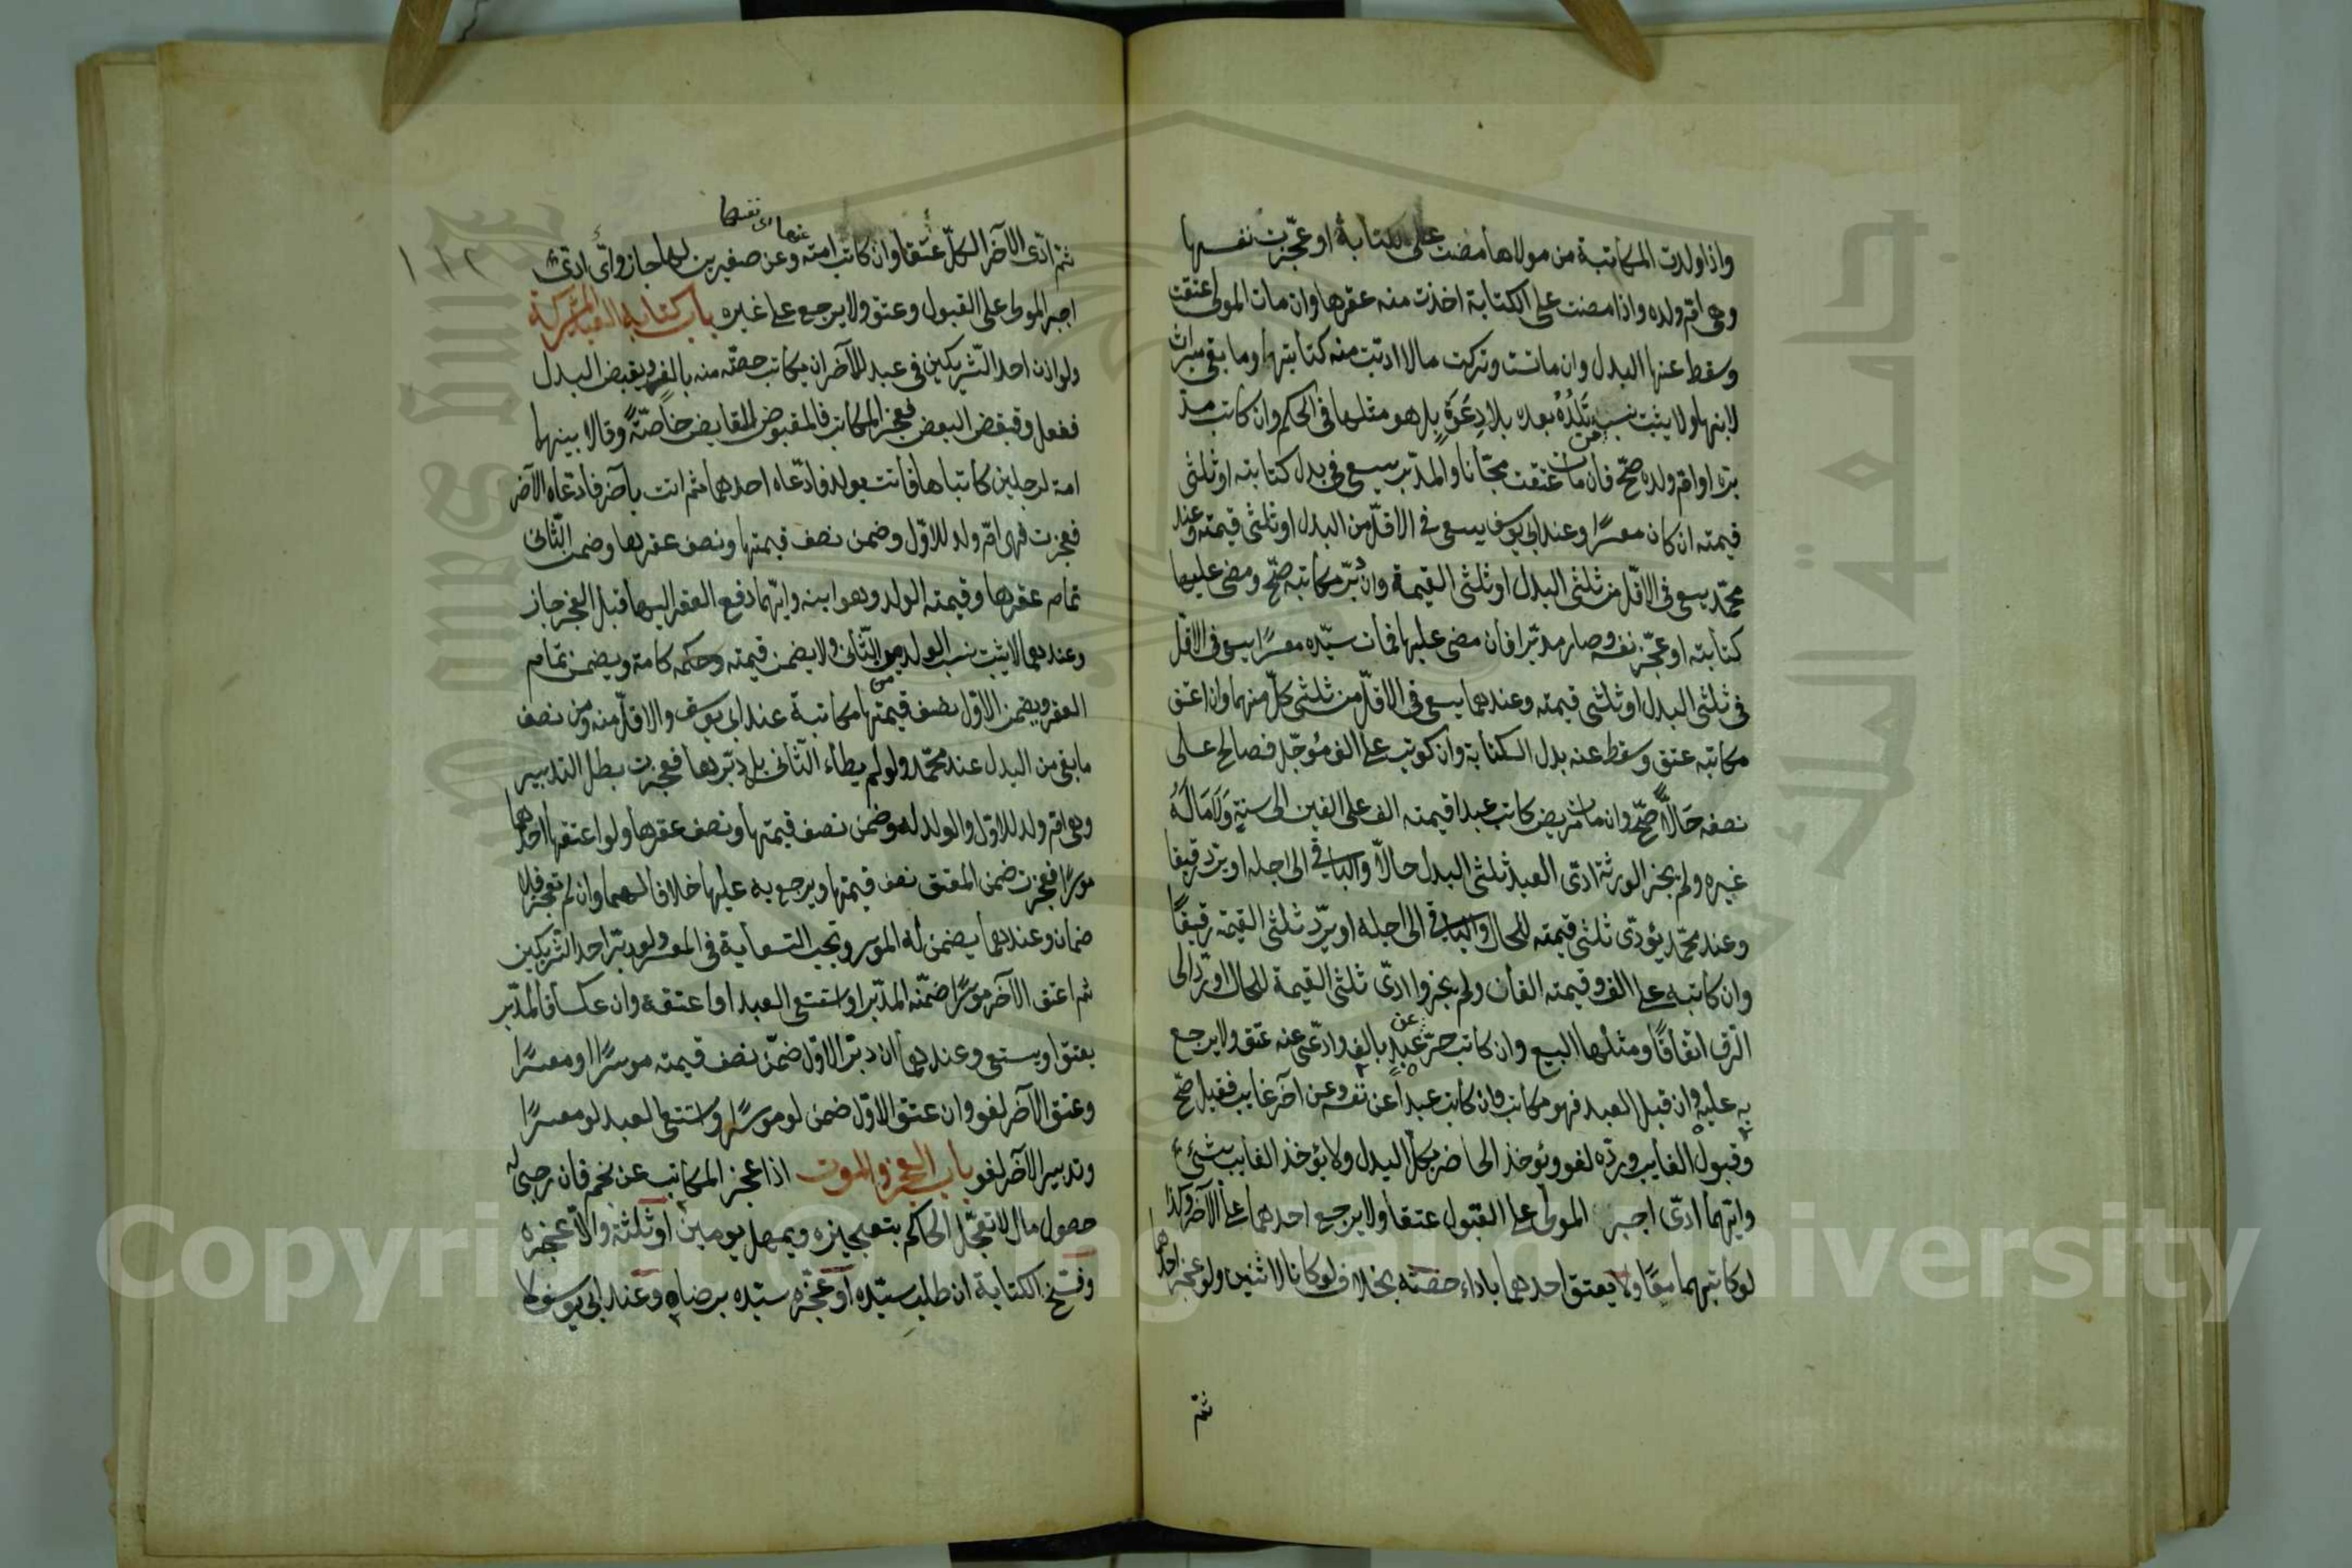 واذا ولدت المكاتبة من مولاها مضت على الكتابة او عجّزت نفسها
وهى امّ ولده واذا مضت على الكتابة اخذت منه عقرها وان مات المولى عتقت
وسقط عنها البدل وان ماتت وتركت مالا ادّيت منه كتابتها وما بقى ميراث
لابنها ولا يثبت نسب من تَلِدُهُ بعده بلا دِعَوَةٍ بل هو مثلها فى الحكم وان كاتب مد
بّره او امّ ولده صحّ فان مات عتقت مجّانا والمدبّر يسعى فى بدل كتابته او ثلثى
قيمته ان كان معسرًا وعند ابى يوسف يسعى فى الاقلّ من البدل او ثلثى قيمته وعند
محمّد يسعى فى الاقلّ من ثلثى البدل او ثلثى القيمة وان دبّر مكاتبه صحّ ومضى عليها
كتابته او عجّز نفسه وصار مدبّرا فان مضى عليها فمات سيّده معسرًا يسعى فى الاقل
فى ثلثى البدل او ثلثى قيمته وعندهما يسعى فى الاقلّ من ثلثى كلّ منهما وان اعتق
مكاتبه عتق وسقط عنه بدل الكتابة وان كوتب على الف مؤجّل فصالح على
نصفه حَالاًّ صحّ وان مات مريض كاتب عبدا قيمته الف على الفين الى سنةٍ وَلَا مَالَ لَهُ
غيره ولم يجز الورثة ادّى العبد ثلثى البدل حالاّ والباقى الى اجله او يردّ رقيقا
وعند محمّد يؤدّى ثلثى قيمته للحال والباقى الى اجله او يردّ ثلثى القيمة رقيقًا
وان كاتبه على الف وقيمته الفان ولم يجزوا ادّى ثلثى القيمة للحال او ردّ الى
الرّق اتفاقًا ومثلها البيع وان كاتب حرّ عن عبدٍ بالف وادّى عنه عتق ولا يرجع
به عليه وان قبل العبد فهو مكاتب وان كاتب عبدا عن نفسه وعن آخر غايب فقبل صحّ
وقبول الغايب وردّه لغو ويؤخذ الحاضر بكلّ البدل ولا يؤخذ الغايب بشئ
وايّهما ادّى اجبر المولى على القبول عتقا ولا يرجع احدهما على الآخر وكذا
لو كاتبهما معًا ولا يعتق احدهما باداء حصّته بخلاف لو كانا لاثنين ولو عجز احدهما
ثمّ
١١٢
ثمّ ادّى الآخر الكلّ عتقا وان كاتب امته عنها اى نفسها وعن صغيرين لها جاز واىّ ادّى
اجبر المولى على القبول وعتق ولا يرجع على غيره باب كتابة العبد المشتركة
ولو اذن احد الشّريكين فى عبد للآخر ان يكاتب حصّته منه بالف ويقبض البدل
ففعل وقبض البعض فعجز المكاتب فالمقبوض للقابض خاصّةً وقالا بينهما
امة لرجلين كاتباها فاتت بولد فادّعاه احدهما ثمّ اتت بآخر فادّعاه الآخر
فعجزت فهى امّ ولد للاوّل وضمن نصف قيمتها ونصف عقرها وضمن الثّانى
تمام عقرها وقيمته الولد وهو ابنه وايّهما دفع العقر اليها قبل العجز جاز
وعندهما لا يثبت نسب الولد من الثّانى ولا يضمن قيمته وحكمه كامّه ويضمن تمام
العقر ويضمن الاوّل نصف قيمتها مكاتبة عند ابى يوسف والاقلّ منه ومن نصف
ما بقى من البدل عند محمّد ولو لم يطاء الثّانى بل دبّرها فعجزت بطل التدبير
وهى امّ ولد للاوّل والولد له وضمن نصف قيمتها ونصف عقرها ولو اعتقها احدهما
موسرًا فعجزت ضمن المعتق نصف قيمتها ويرجع به عليها خلافا لهما وان لم تعجز فلا
ضمان وعندهما يضمن له الموسر وتجب السّعاية فى المعسر ولو دبّر احد الشّريكين
ثم اعتق الآخر موسرًا ضمّنه المدبّر او استسعى العبد او اعتقه وان عكسا فالمدبّر
يعتق او يستسعى وعندهما ان دبّر الاوّل ضمّن نصف قيمته موسرًا او معسرًا
وعتق الآخر لغو وان عتق الاوّل ضمن لو موسرًا واستسعى العبد لو معسرًا
وتدبير الآخر لغو باب العجز والموت اذا عجز المكاتب عن نجم فان رجى له
حصول مال لا تعجّل الحاكم بتعجيزه ويمهل يومين او ثلثة والاّ عجّزه
وفسخ الكتابة ان طلب سيّده او عجّزه سيّده برضاه وعند ابى يوسف لا
Copyright © King Saud University